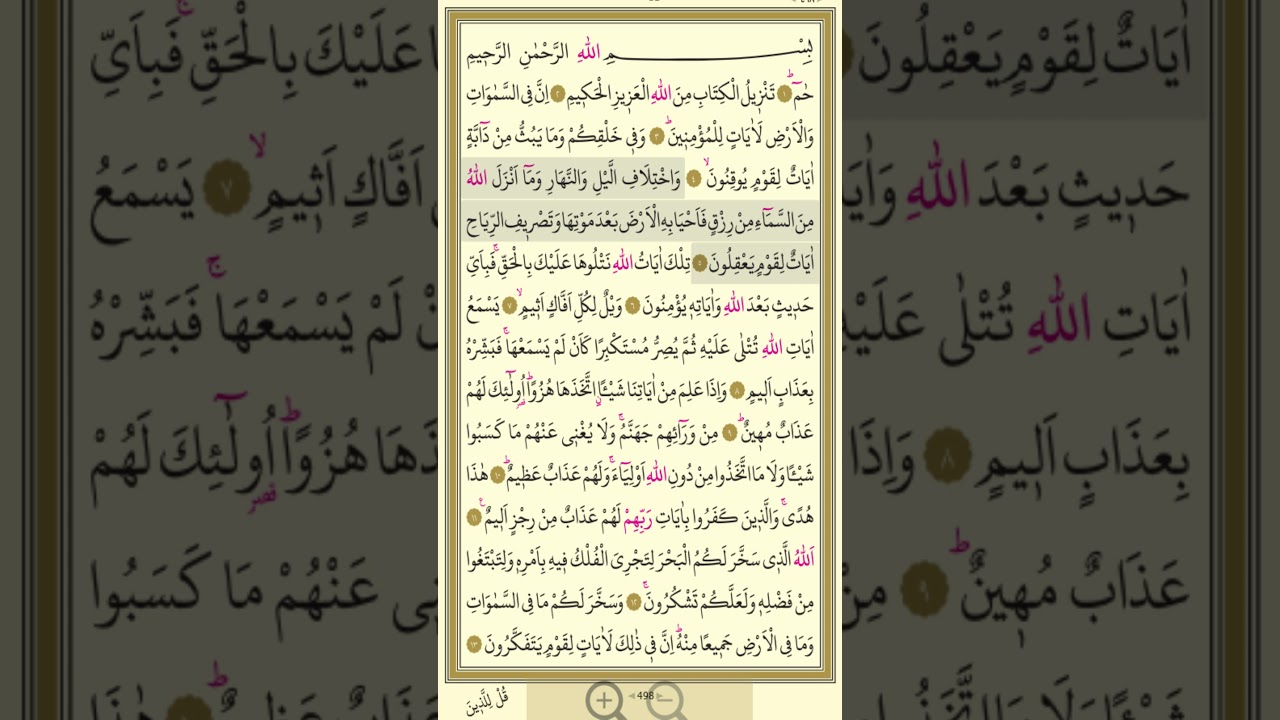 بِسْمِ اللّٰهِ الرَّحْمٰنِ الرَّحٖيمِ
حٰمٓۜ ﴿١﴾ تَنْزٖيلُ الْكِتَابِ مِنَ اللّٰهِ الْعَزٖيزِ الْحَكٖيمِ ﴿٢﴾ اِنَّ فِى السَّمٰوَاتِ
وَالْاَرْضِ لَاٰيَاتٍ لِلْمُؤْمِنٖينَۜ ﴿٣﴾ وَفٖى خَلْقِكُمْ وَمَا يَبُثُّ مِنْ دَٓابَّةٍ
اٰيَاتٌ لِقَوْمٍ يُوقِنُونَۙ ﴿٤﴾ وَاخْتِلَافِ الَّيْلِ وَالنَّهَارِ وَمَٓا اَنْزَلَ اللّٰهُ
مِنَ السَّمَٓاءِ مِنْ رِزْقٍ فَاَحْيَا بِهِ الْاَرْضَ بَعْدَ مَوْتِهَا وَتَصْرٖيفِ الرِّيَاحِ
اٰيَاتٌ لِقَوْمٍ يَعْقِلُونَ ﴿٥﴾ تِلْكَ اٰيَاتُ اللّٰهِ نَتْلُوهَا عَلَيْكَ بِالْحَقِّۚ فَبِاَىِّ
حَدٖيثٍ بَعْدَ اللّٰهِ وَاٰيَاتِهٖ يُؤْمِنُونَ ﴿٦﴾ وَيْلٌ لِكُلِّ اَفَّاكٍ اَثٖيمٍۙ ﴿٧﴾ يَسْمَعُ
اٰيَاتِ اللّٰهِ تُتْلٰى عَلَيْهِ ثُمَّ يُصِرُّ مُسْتَكْبِرًا كَاَنْ لَمْ يَسْمَعْهَاۚ فَبَشِّرْهُ
بِعَذَابٍ اَلٖيمٍ ﴿٨﴾ وَاِذَا عَلِمَ مِنْ اٰيَاتِنَا شَيْـًٔاۨ اتَّخَذَهَا هُزُوًاۜ اُو۬لٰٓئِكَ لَهُمْ
عَذَابٌ مُهٖينٌۜ ﴿٩﴾ مِنْ وَرَٓائِهِمْ جَهَنَّمُۚ وَلَا يُغْنٖى عَنْهُمْ مَا كَسَبُوا
شَيْـًٔا وَلَا مَا اتَّخَذُوا مِنْ دُونِ اللّٰهِ اَوْلِيَٓاءَۚ وَلَهُمْ عَذَابٌ عَظٖيمٌۜ ﴿١٠﴾ هٰذَا
هُدًىۚ وَالَّذٖينَ كَفَرُوا بِاٰيَاتِ رَبِّهِمْ لَهُمْ عَذَابٌ مِنْ رِجْزٍ اَلٖيمٌ ﴿١١﴾
اَللّٰهُ الَّذٖى سَخَّرَ لَكُمُ الْبَحْرَ لِتَجْرِىَ الْفُلْكُ فٖيهِ بِاَمْرِهٖ وَلِتَبْتَغُوا
مِنْ فَضْلِهٖ وَلَعَلَّكُمْ تَشْكُرُونَۚ ﴿١٢﴾ وَسَخَّرَ لَكُمْ مَا فِى السَّمٰوَاتِ
وَمَا فِى الْاَرْضِ جَمٖيعًا مِنْهُۜ اِنَّ فٖى ذٰلِكَ لَاٰيَاتٍ لِقَوْمٍ يَتَفَكَّرُونَ ﴿١٣﴾
قُلْ لِلَّذٖينَ
498